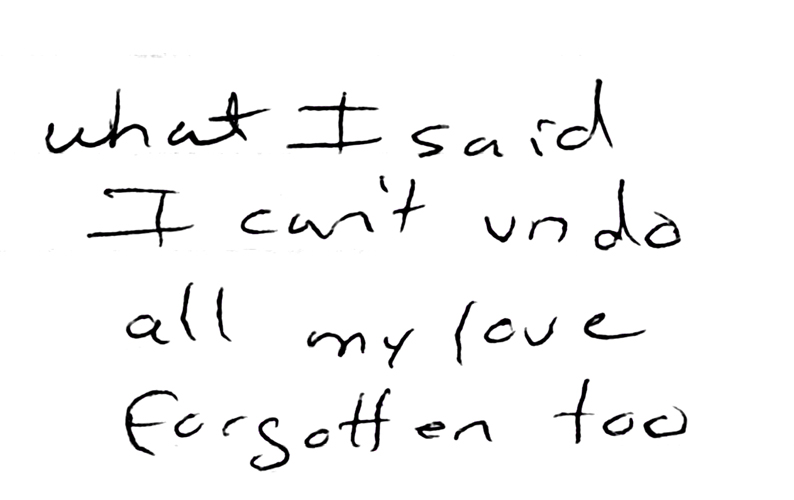 what I said
I can't undo
all my love
forgotten too